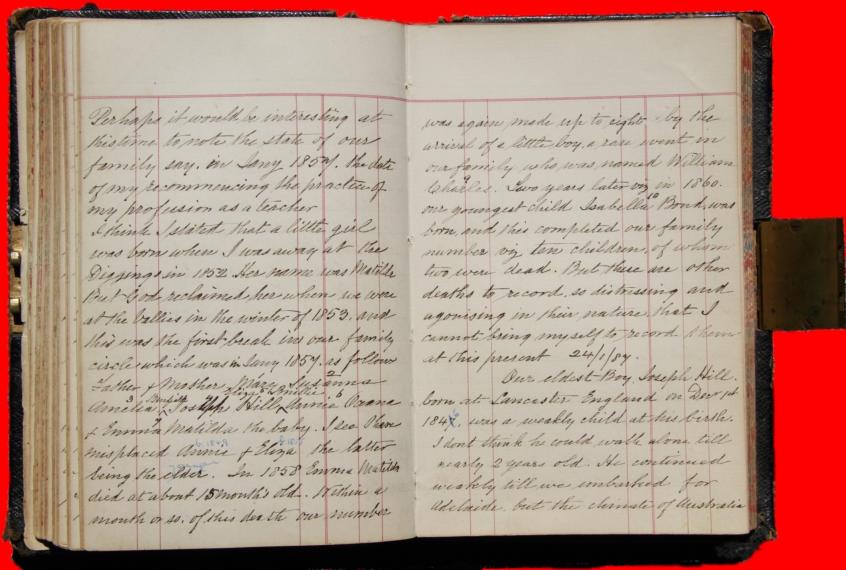 Perhaps it would be interesting at
this time to note the state of our
family say, in Jany 1857. the date
of my recommencing the practice of
my profession as a teacher
I think I stated that a little girl
was born when I was away at the
Diggings in 1852. Her name was Matilda
But God reclaimed her when we were
at the Vallies in the winter of 1853. and
this was the first break in our family
circle which was in Jany 1857. as follow
Father & Mother, Mary Susanna
2
Eliza
Amelia, Joseph Hill, Annie
3
6
& Emma Matilda the baby. I see I have
misplaced Annie & Eliza the latter
being the elder. In 1858 Emma Matilda
died at about 15 months old. Within a
month or so. of this death our number
was again made up to eight by the
arrival of a little boy, a rare event in
our family who was named William
9
Charles. Two years later viz in 1860.
10
our youngest child Isabella Bond, was
born, and this completed our family
number viz ten children, of whom
two were dead. But there are other
deaths to record, so distressing and
agonising in their nature, that I
cannot bring myself to record them
at this present 24/1/87.
Our eldest Boy, Joseph Hill.
born at Lancaster England on Decr 1st
was a weakly child at his birth.
I dont think he could walk alone till
nearly 2 years old. He continued
weakly till we embarked for
Adelaide, but the climate of Australia